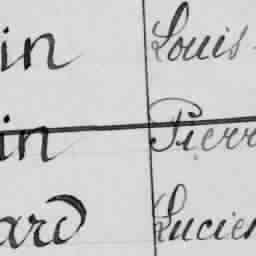 in Louis
in Pierr
ard Lucien